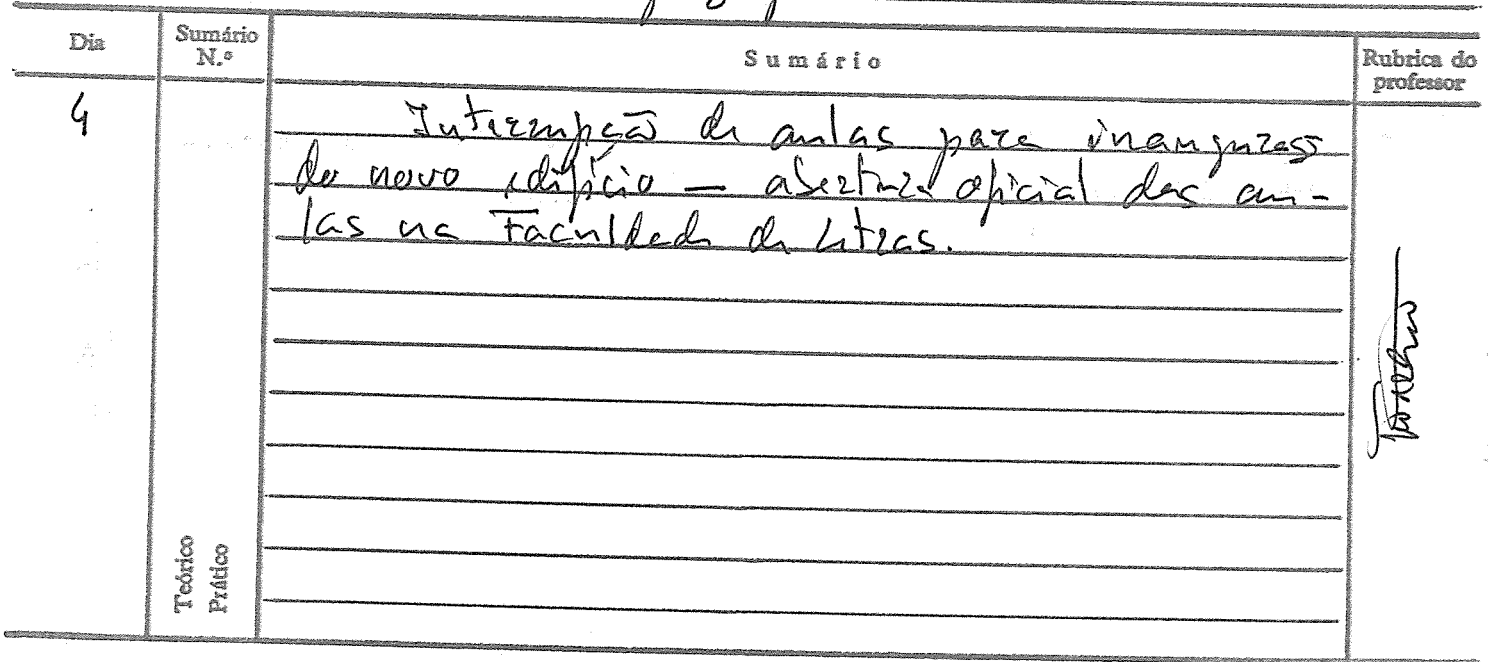 Dia
Sumário
N.º
Sumário
Rubrica do
professor
4
Interrupção de aulas para inauguração
do novo edifício — abertura oficial das au-
las na Faculdade de Letras.
Teórico
Prático